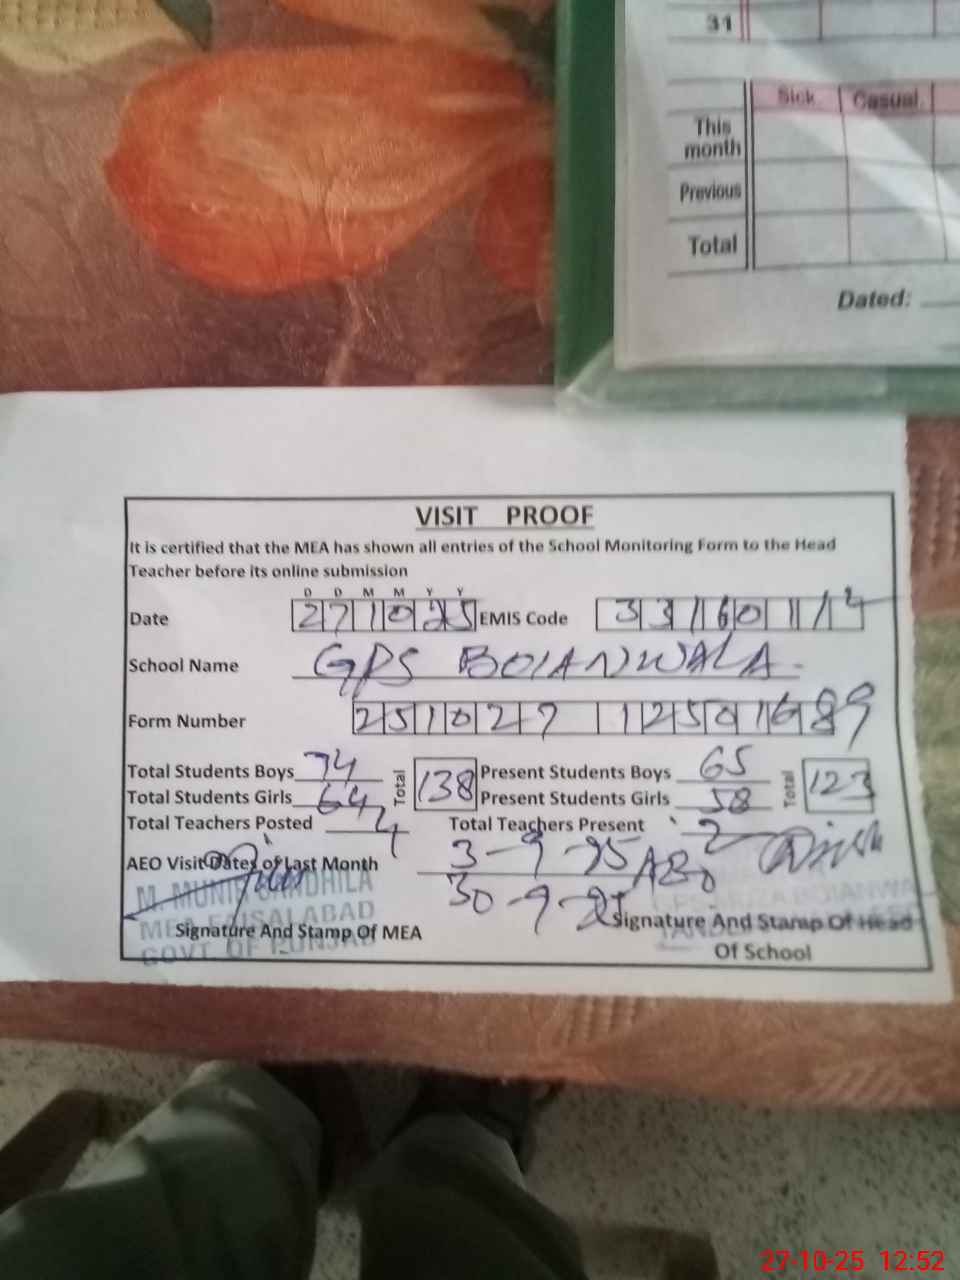 31
Sick Casual
This month
Previous
Total
Dated:
VISIT PROOF
It is certified that the MEA has shown all entries of the School Monitoring Form to the Head
Teacher before its online submission
D D M M Y Y
Date 271025 EMIS Code 33160114
School Name GPS BOIANWALA
Form Number 251027 12501689
Total Students Boys 74 Total 138 Present Students Boys 65 Total 123
Total Students Girls 64 Present Students Girls 58
Total Teachers Posted 4 Total Teachers Present 2
AEO Visit Dates of Last Month 3-9-25
30-9-25
M. MUNIR SANDHILA
MEA FAISALABAD
GOVT. OF PUNJAB
Signature And Stamp Of MEA
BOIANWA
Signature And Stamp Of Head
Of School
27-10-25 12:52